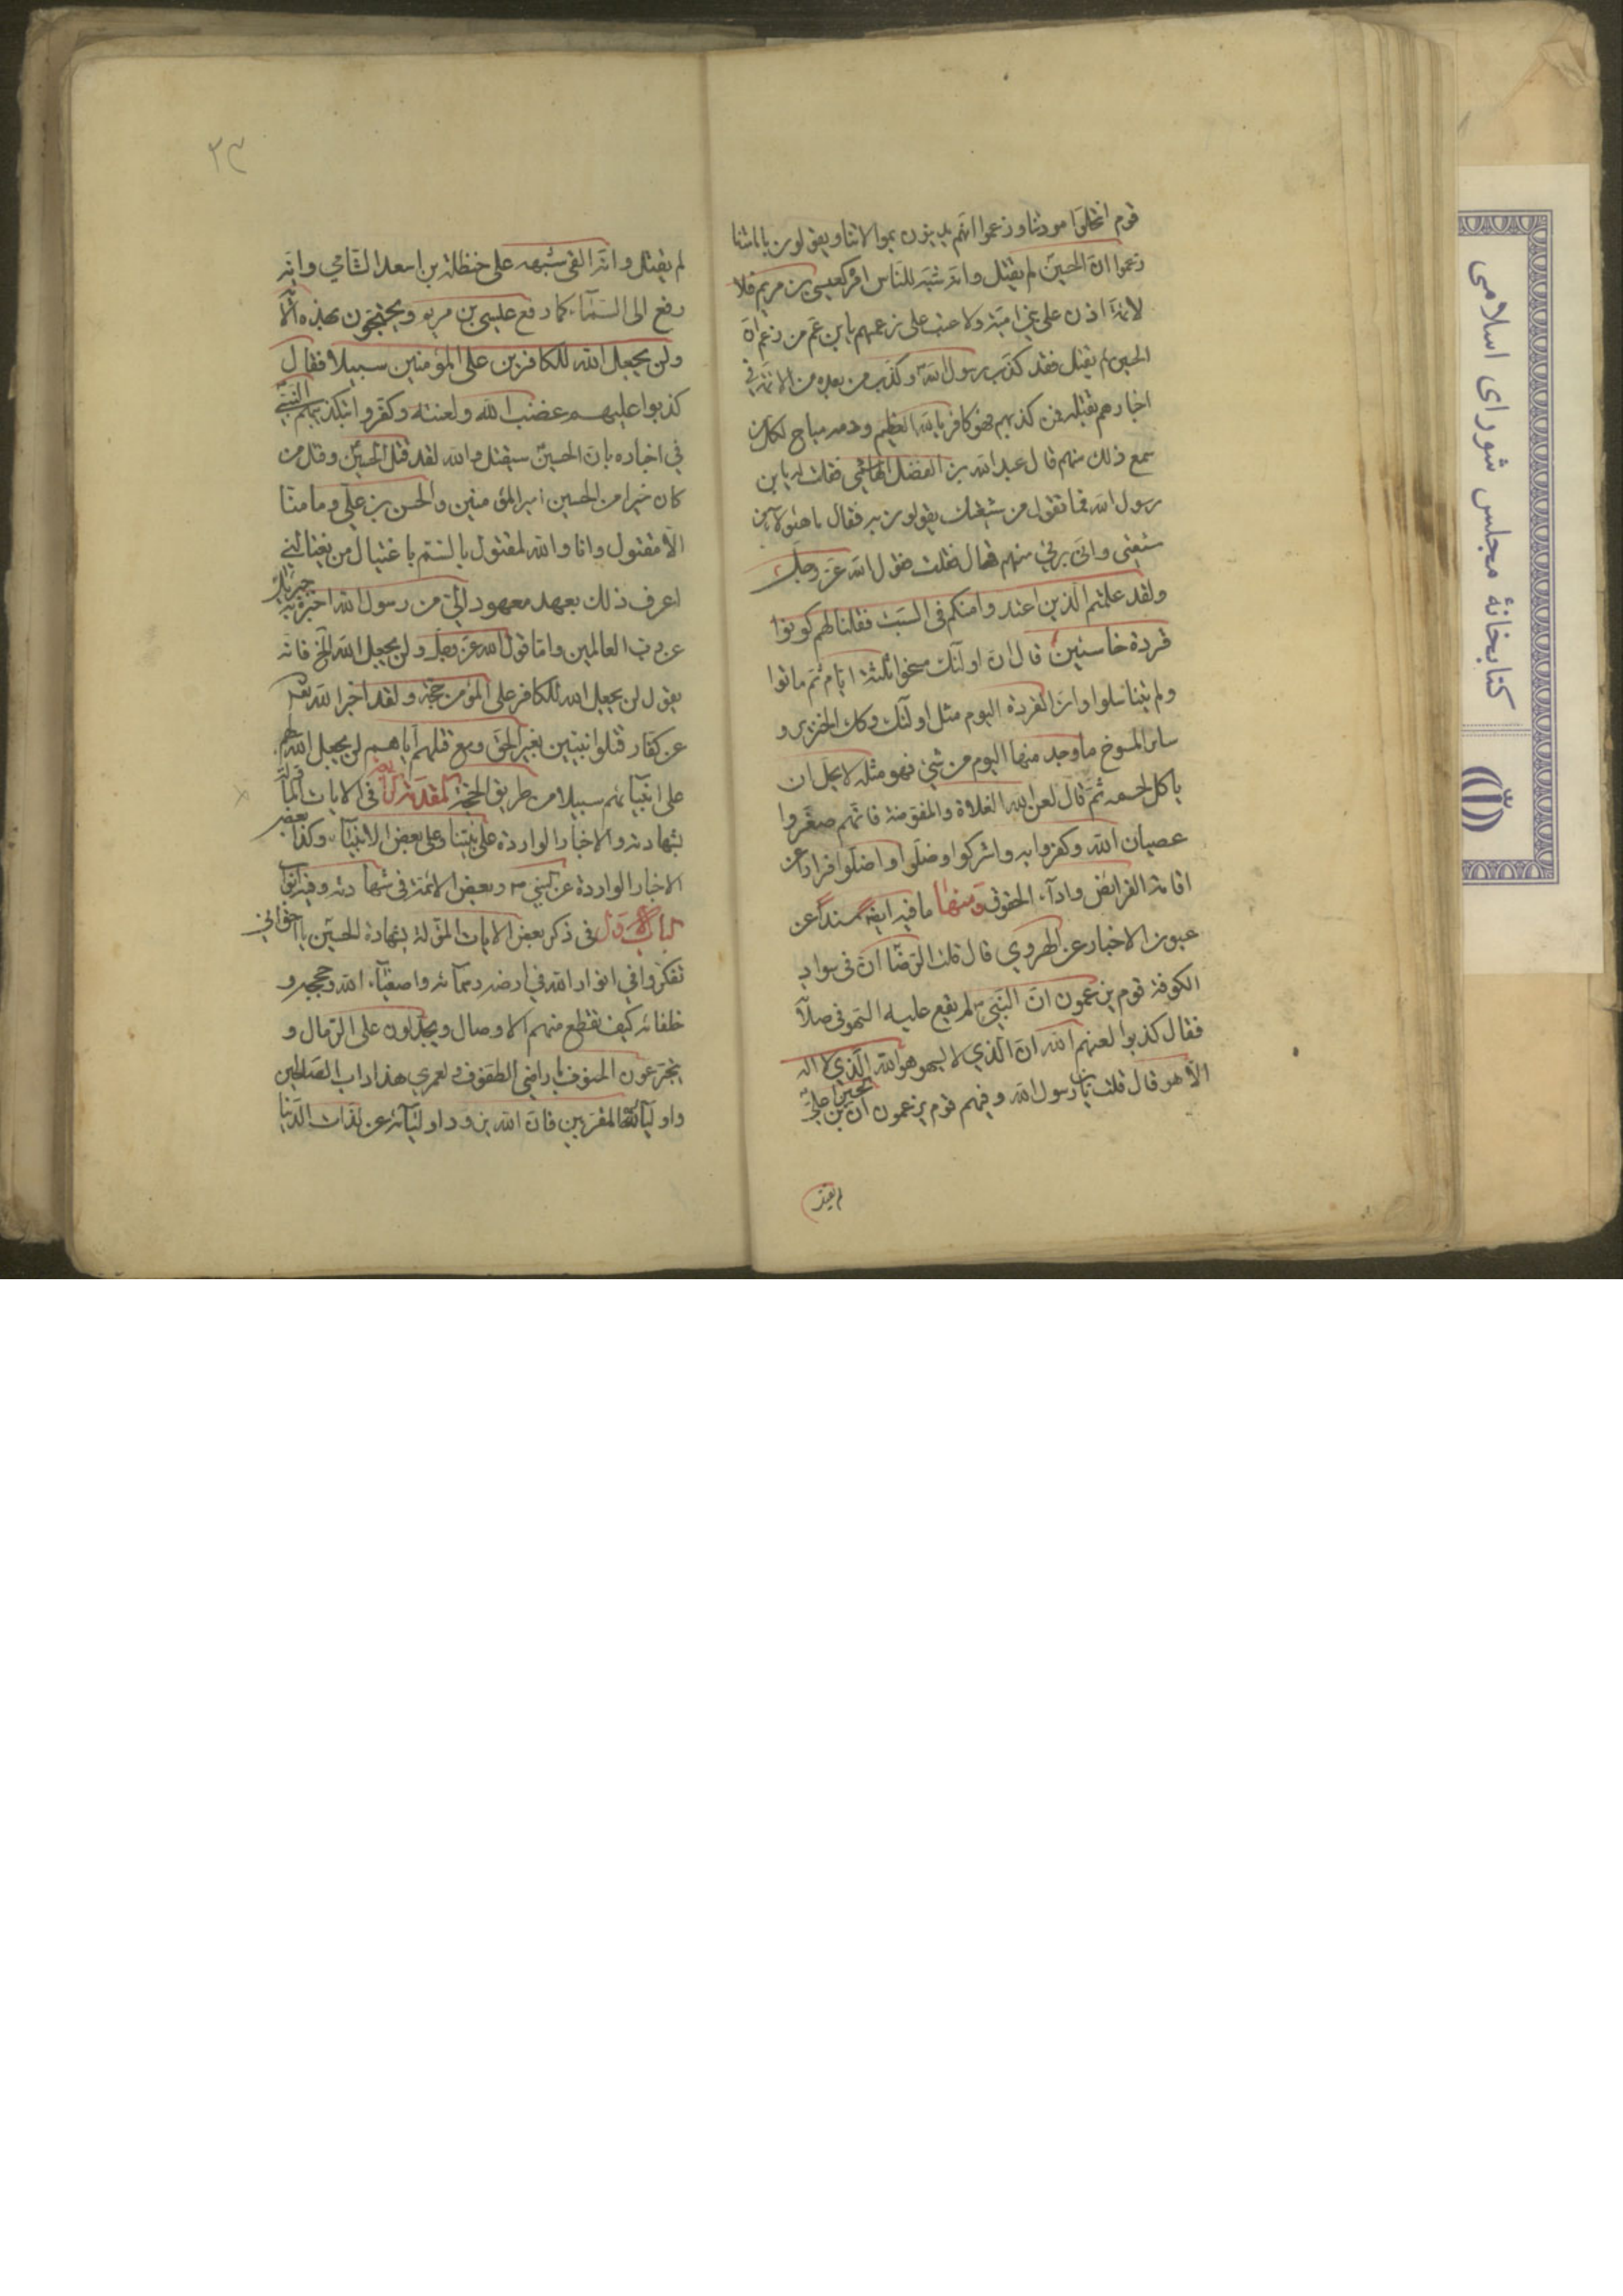 قوم انتحلوا مودتنا وزعموا انهم يدينون بموالاتنا ويقولون بامامتنا
زعموا ان الحسين لم يقتل وانه شبه للناس امره كعيسى بن مريم فلا
لائمة اذن على بني امية ولا عتب على زعمهم يا بن عم من زعم ان
الحسين لم يقتل فقد كذب رسول الله وكذب من بعده من الائمة في
اخبارهم بقتله فمن كذبهم فهو كافر بالله العظيم ودمه مباح لكل من
سمع ذلك منهم قال عبد الله بن الفضل الهاشمي فقلت له يا بن
رسول الله فما تقول من شيعتك يقولون به فقال ما هؤلاء من
شيعتي واني بريء منهم قال فقلت فقول الله عز وجل
ولقد علمتم الذين اعتدوا منكم في السبت فقلنا لهم كونوا
قردة خاسئين قال ان اولئك مسخوا ثلثة ايام ثم ماتوا
ولم يتناسلوا وان القردة اليوم مثل اولئك وكك الخنزير و
ساير المسوخ ما وجد منها اليوم من شيء فهو مثله لا يحل ان
ياكل لحمه ثم قال لعن الله الغلاة والمفوضة فانهم صغروا
عصيان الله وكفروا به واشركوا وضلوا واضلوا فرارا من
اقامة الفرائض وادآء الحقوق ومنها ما فيه ايضا مسندا عن
عيون الاخبار عن الهروي قال قلت للرضا ان في سواد
الكوفة قوم يزعمون ان النبي ص لم يقع عليه السهو في صلاته
فقال كذبوا لعنهم الله ان الذي لا يسهو هو الله الذي لا اله
الا هو قال قلت يا بن رسول الله وفيهم قوم يزعمون ان الحسين بن علي
لم يقتل
٢٣
لم يقتل وانه القى شبهه على حنظلة بن اسعد الشامي وانه
رفع الى السمآء كما رفع عيسى بن مريم ويحتجون بهذه الآية
ولن يجعل الله للكافرين على المؤمنين سبيلا فقال
كذبوا عليهم غضب الله ولعنته وكفروا بتكذيبهم النبي
في اخباره بان الحسين سيقتل والله لقد قتل الحسين وقتل من
كان خيرا من الحسين امير المؤمنين والحسن بن علي وما منا
الا مقتول وانا والله لمقتول بالسم باغتيال من يغتالني
اعرف ذلك بعهد معهود الي من رسول الله اخبره به جبرئيل
عن رب العالمين واما قول الله عز وجل ولن يجعل الله الخ فانه
يقول لن يجعل الله للكافر على المؤمن حجة ولقد اخبر الله تعالى
عن كفار قتلوا نبيين بغير الحق ومع قتلهم اياهم لن يجعل الله لهم
على انبيآئهم سبيلا من طريق الحجة المقدمة الرابعة في الايات المأولة
بشهادته والاخبار الواردة على نبينا وعلى بعض الانبيآء وكذا بعض
الاخبار الواردة عن النبي ص وبعض الائمة في شهادته وفيه ابواب
الباب الاول في ذكر بعض الايات المؤلة بشهادة الحسين يا اخواني
تفكروا في انوار الله في ارضه وسمآئه واصفيآء الله وحججه و
خلفائه كيف تقطع منهم الاوصال ويجدلون على الرمال و
يتجرعون الحتوف باراضي الطفوف ولعمري هذا داب الصالحين
واوليآئه المقربين فان الله يذود اوليآئه عن لذات الدنيا
كتابخانهٔ مجلس شورای اسلامی